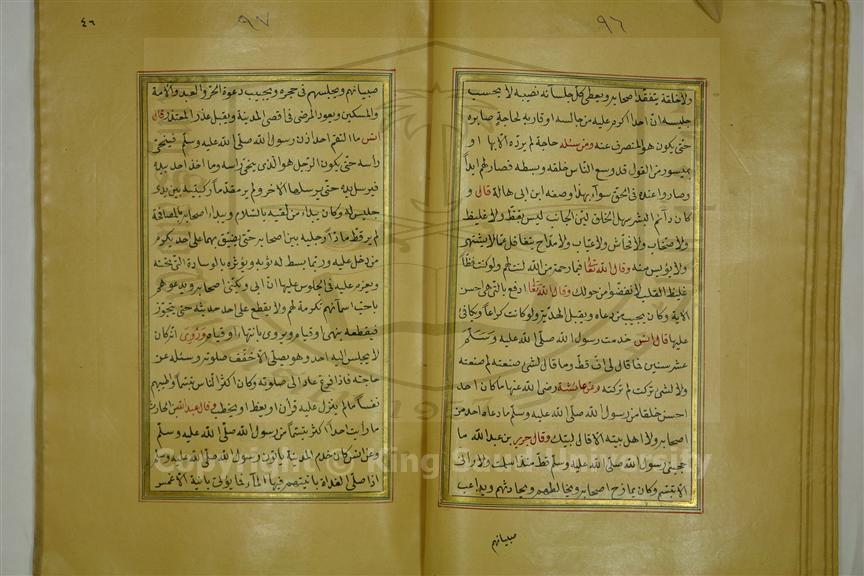 ٩٦
ولا خلقة يتفقد اصحابه ويعطى كل جلسائه نصيبه لا يحسب
جليسه ان احدا اكرم عليه من جالسه او قاربه لحاجة صابره
حتى يكون هو المنصرف عنه ومن سئله حاجة لم يرده الا بها او
بميسور من القول قد وسع الناس خلقه وبسطه فصار لهم ابدا
وصاروا عنده في الحق سوآء بهذا وصفه ابن ابى هالة قال و
كان دآئم البشر سهل الخلق لين الجانب ليس بفظ ولا غليظ
ولا صخاب ولا فحاش ولا عياب ولا مداح يتغافل عما لا يشتهى
ولا يؤيس منه وقال الله تعالى فبما رحمة من الله لنت لهم ولو كنت فظا
غليظ القلب لانفضوا من حولك وقال الله تعالى ادفع بالتى هى احسن
الاية وكان يجيب من دعاه ويقبل الهدية ولو كانت كراعا ويكافى
عليها قال انس خدمت رسول الله صلى الله عليه وسلم
عشر سنين فما قال لى اف قط وما قال لشئ صنعته لم صنعته
ولا لشئ تركت لم تركته وعن عائشة رضى الله عنها ما كان احد
احسن خلقا من رسول الله صلى الله عليه وسلم ما دعاه احد من
اصحابه ولا اهل بيته الا قال لبيك وقال جرير بن عبد الله ما
حجبنى رسول الله صلى الله عليه وسلم قط منذ اسلمت ولا رانى
الا تبسم وكان يمازح اصحابه ويخالطهم ويحادثهم ويداعب
صبيانهم
٩٧
٤٦
صبيانهم ويجلسهم في حجره ويجيب دعوة الحر والعبد والامة
والمسكين ويعود المرضى في اقصى المدينة ويقبل عذر المعتذر قال
انس ما التقم احد اذن رسول الله صلى الله عليه وسلم فينحى
راسه حتى يكون الرجل هو الذى ينحى راسه وما اخذ احد بيده
فيرسل يده حتى يرسلها الاخر ولم ير مقدما ركبتيه بين يدى
جليس له وكان يبداء من لقيه بالسلام ويبداء اصحابه بالمصافحة
لم ير قط مادا رجليه بين اصحابه حتى يضيق بهما على احد يكرم
من دخل عليه وربما بسط له ثوبه ويؤثره بالوسادة التى تحته
ويعزم عليه في الجلوس عليها ان ابى ويكنى اصحابه ويدعوهم
باحب اسمائهم تكرمة لهم ولا يقطع على احد حديثه حتى يتجوز
فيقطعه بنهى او قيام ويروى بانتهاء او قيام وروى انه كان
لا يجلس اليه احد وهو يصلى الا خفف صلوته وسئله عن
حاجته فاذا فرغ عاد الى صلوته وكان اكثر الناس تبسما واطيبهم
نفسا ما لم ينزل عليه قرآن او يعظ او يخطب وقال عبد الله بن الحارث
ما رايت احدا اكثر تبسما من رسول الله صلى الله عليه وسلم
وعن انس كان خدم المدينة ياتون رسول الله صلى الله عليه وسلم
اذا صلى الغداة بانيتهم فيها المآء فما يؤتى بانية الا غمس
Copyright © King Saud University
1957